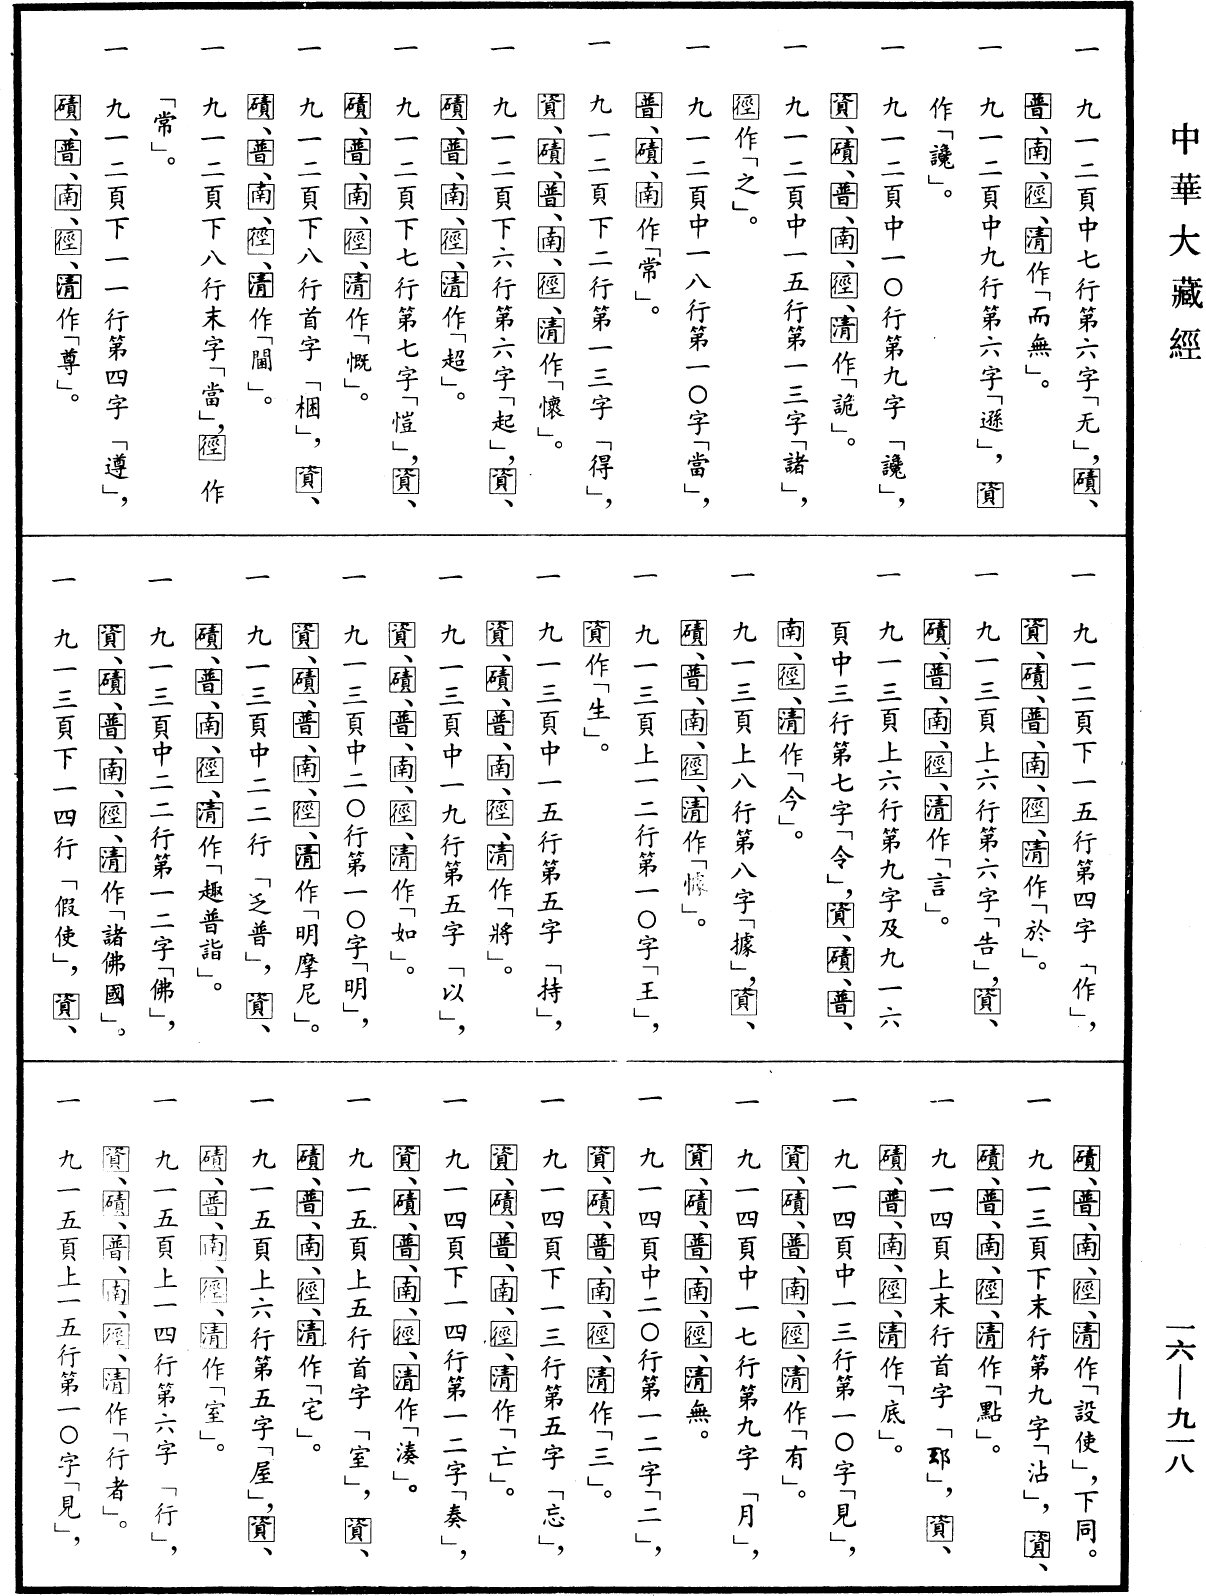 中華大藏經
一　九一二頁中七行第六字「无」，磧、
普、南、徑、清作「而無」。
一　九一二頁中九行第六字「遜」，資
作「讒」。
一　九一二頁中一〇行第九字「讒」，
資、磧、普、南、徑、清作「詭」。
一　九一二頁中一五行第一三字「諸」，
徑作「之」。
一　九一二頁中一八行第一〇字「當」，
普、磧、南作「常」。
一　九一二頁下二行第一三字「得」，
資、磧、普、南、徑、清作「懷」。
一　九一二頁下六行第六字「起」，資、
磧、普、南、徑、清作「超」。
一　九一二頁下七行第七字「愷」，資、
磧、普、南、徑、清作「慨」。
一　九一二頁下八行首字「梱」，資、
磧、普、南、徑、清作「閫」。
一　九一二頁下八行末字「當」，徑作
「常」。
一　九一二頁下一一行第四字「遵」，
磧、普、南、徑、清作「尊」。
一　九一二頁下一五行第四字「作」，
資、磧、普、南、徑、清作「於」。
一　九一三頁上六行第六字「告」，資、
磧、普、南、徑、清作「言」。
一　九一三頁上六行第九字及九一六
頁中三行第七字「令」，資、磧、普、
南、徑、清作「今」。
一　九一三頁上八行第八字「據」，資、
磧、普、南、徑、清作「懅」。
一　九一三頁上一二行第一〇字「王」，
資作「生」。
一　九一三頁中一五行第五字「持」，
資、磧、普、南、徑、清作「將」。
一　九一三頁中一九行第五字「以」，
資、磧、普、南、徑、清作「如」。
一　九一三頁中二〇行第一〇字「明」，
資、磧、普、南、徑、清作「明摩尼」。
一　九一三頁中二二行「乏普」，資、
磧、普、南、徑、清作「趣普詣」。
一　九一三頁中二二行第一二字「佛」，
資、磧、普、南、徑、清作「諸佛國」。
一　九一三頁下一四行「假使」，資、
磧、普、南、徑、清作「設使」，下同。
一　九一三頁下末行第九字「沾」，資、
磧、普、南、徑、清作「點」。
一　九一四頁上末行首字「耶」，資、
磧、普、南、徑、清作「底」。
一　九一四頁中一三行第一〇字「見」，
資、磧、普、南、徑、清作「有」。
一　九一四頁中一七行第九字「月」，
資、磧、普、南、徑、清無。
一　九一四頁中二〇行第一二字「二」，
資、磧、普、南、徑、清作「三」。
一　九一四頁下一三行第五字「忘」，
資、磧、普、南、徑、清作「亡」。
一　九一四頁下一四行第一二字「奏」，
資、磧、普、南、徑、清作「湊」。
一　九一五頁上五行首字「室」，資、
磧、普、南、徑、清作「宅」。
一　九一五頁上六行第五字「屋」，資、
磧、普、南、徑、清作「室」。
一　九一五頁上一四行第六字「行」，
資、磧、普、南、徑、清作「行者」。
一　九一五頁上一五行第一〇字「見」，
一六—九一八